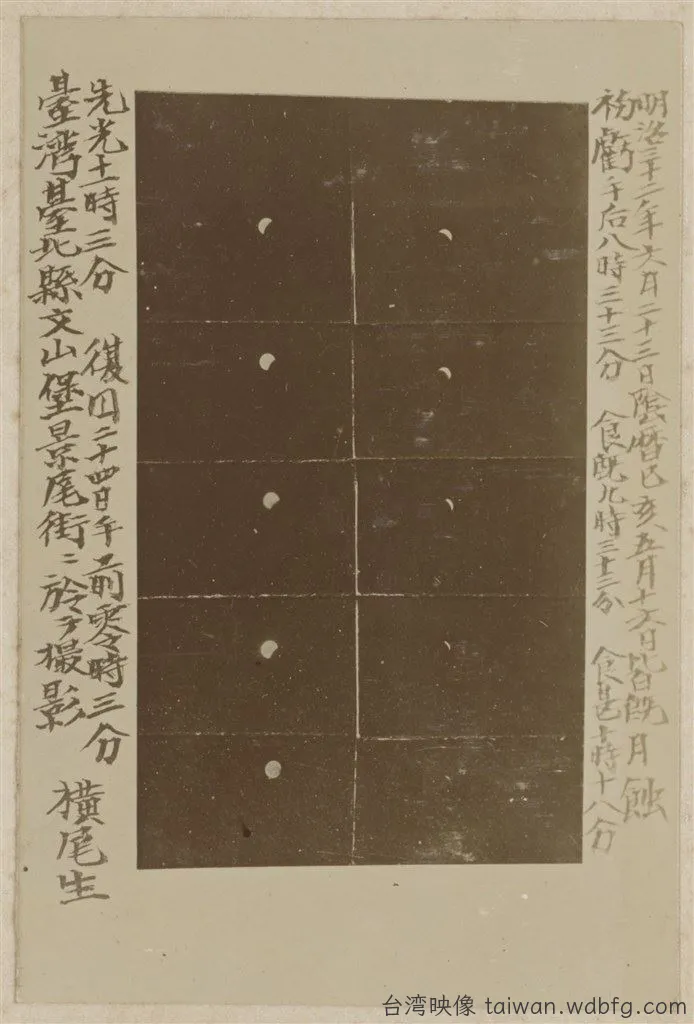 明治三十二年六月二十三日陰暦已亥五月十六日皆既月蝕
初虧午后八時三十三分 食既九時三十三分 食甚十時十八分
先光十一時三分 復円二十四日午前零時三分
臺灣臺北縣文山堡景尾街ニ於テ撮影
横尾生
台湾映像 taiwan.wdbfg.com